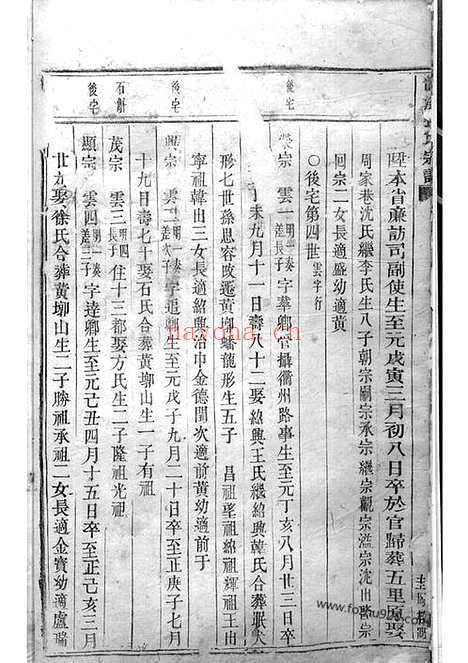 陞本省廉訪司副使生至元戊寅三月初八日卒於官歸葬五里原娶
周家巷沈氏繼李氏生八子朝宗嗣宗承宗繼宗觀宗溢宗沈出啟宗
回宗二女長適盛幼適黃
〇後宅第四世雲字行
後宅
宗 雲一 明一奏長子 字羣卿官攝衢州路事生至元丁亥八月廿三日卒
丁未九月十一日壽八十二娶紹興王氏繼紹興韓氏合葬
形七世孫思容改遷黃塘蟠龍形生五子 昌祖望祖紹祖輝祖王出
寧祖韓出三女長適紹興冶中金德閏次適前黃幼適前于
後宅
興宗 雲二 明一奏次子 字追卿生至元戊子九月二十日卒至正庚子七月
十九日壽七十娶石氏合葬黃塘山生一子有祖
石斛
茂宗 雲三 明四長子 住十三都娶方氏生二子隆祖光祖
後宅
顯宗 雲四 明一奏三子 字達卿生至元己丑四月十五日卒至正己亥三月
廿九娶徐氏合葬黃塘山生二子勝祖承祖二女長適金寶幼適盧瑞